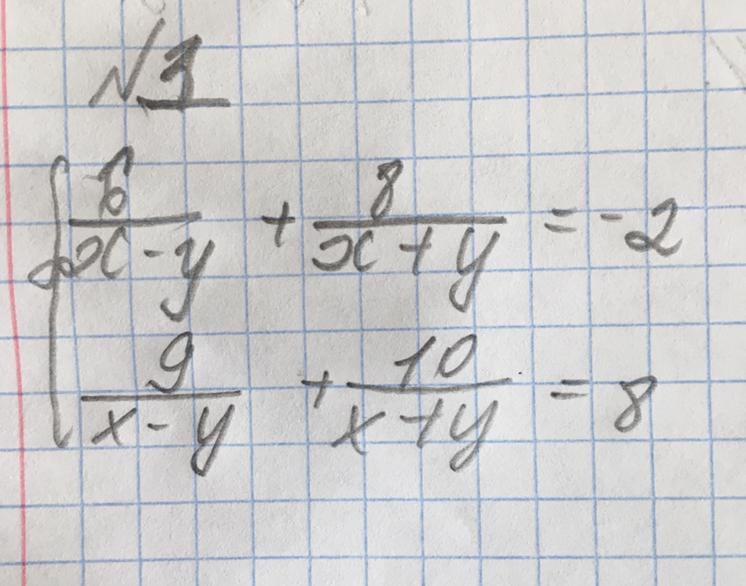 №1
6/(x-y) + 8/(x+y) = -2
9/(x-y) + 10/(x+y) = 8